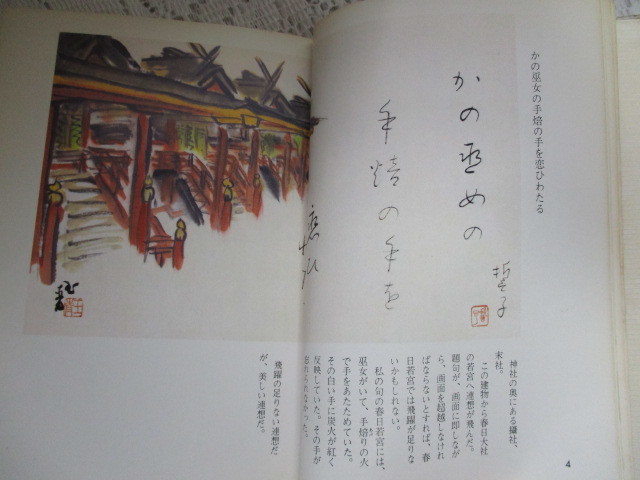 かの巫女の手焙の手を恋ひわたる
かの巫女の
手焙の手を
恋ひ
哲子
神社の奥にある摂社、
末社。
この建物から春日大社
の若宮へ連想が飛んだ。
題句が、画面に即しなが
ら、画面を超越しなけれ
ばならないとすれば、春
日若宮では飛躍が足りな
いかもしれない。
私の句の春日若宮には、
巫女がいて、手焙りの火
で手をあたためていた。
その白い手に炭火が紅く
反映していた。その手が
忘れられなかった。
飛躍の足りない連想だ
が、美しい連想だ。
4